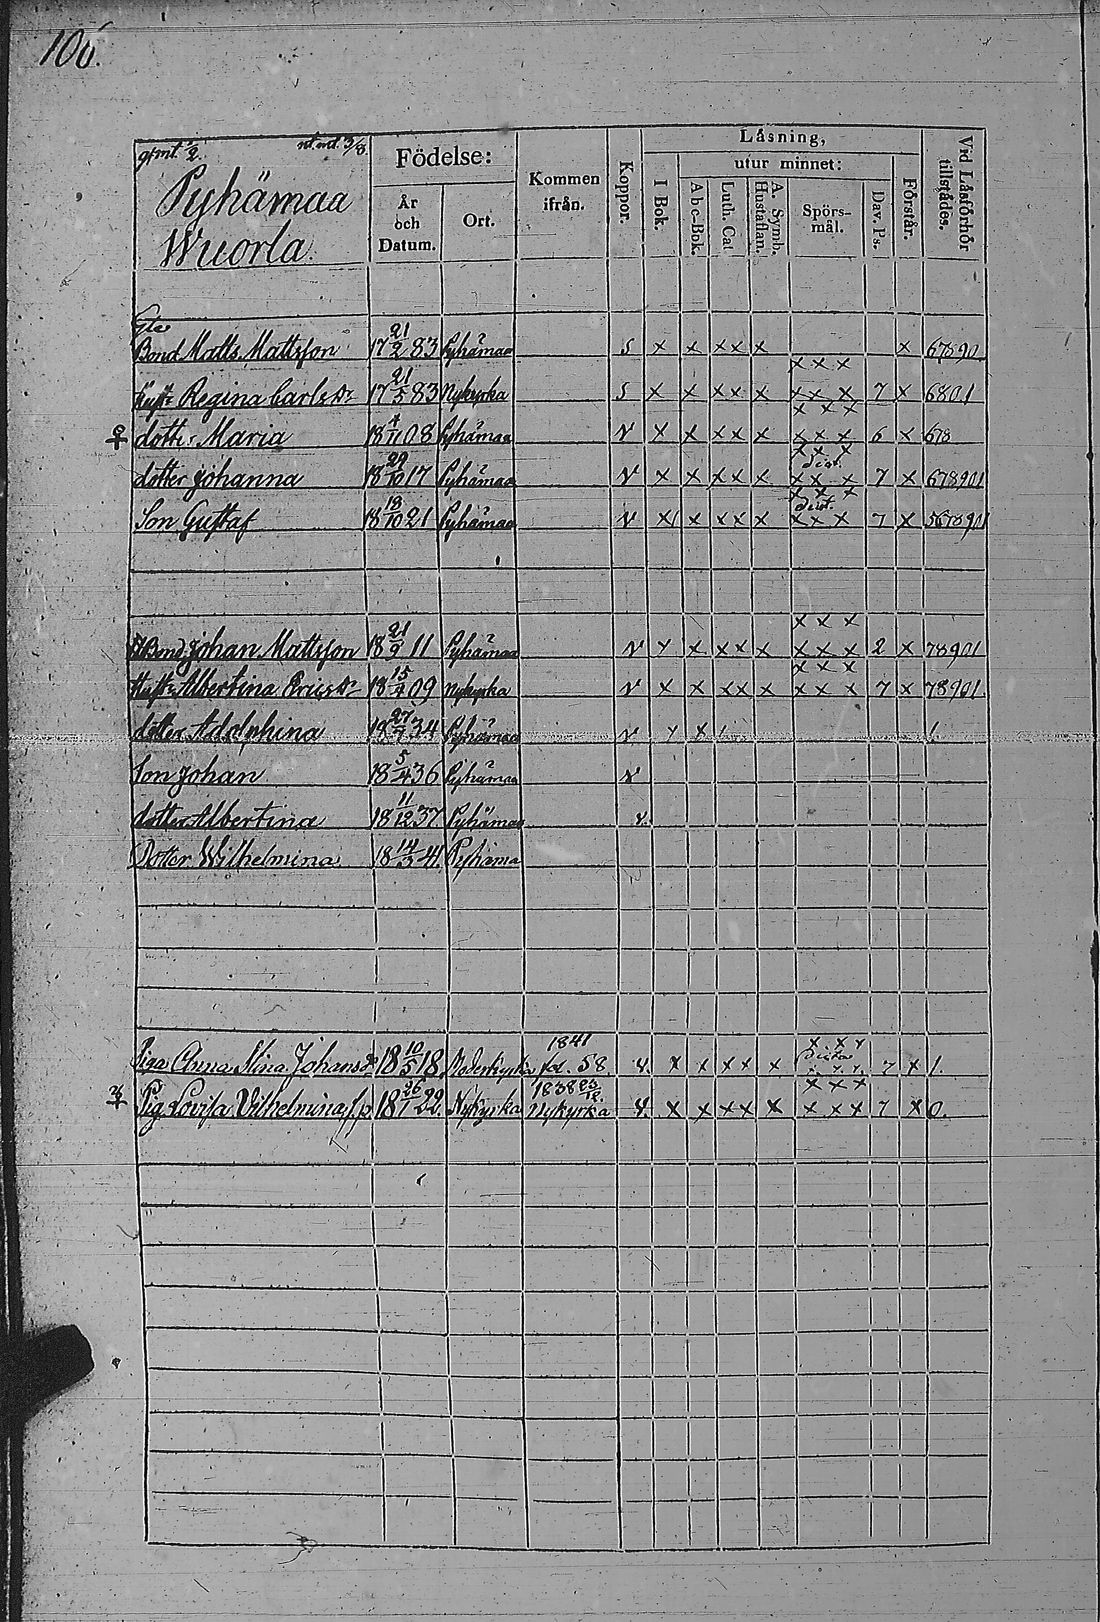 106.
gl mt 1/2. nt mt 3/8
Pyhämaa
Wuorla.
Födelse:
År och Datum.
Ort.
Kommen ifrån.
Koppor.
Läsning,
I Bok.
utur minnet:
Abc-Bok.
Luth. Cat
A. Symb. Hustaflan.
Spörs-mål.
Dav. Ps.
Förstår.
Vid Läsförhör tillstädes.
Gle
Bond Matts Mattsson 17 21/2 83 Pyhämaa S x x xx x x 67890
x x x
Hust: Regina Carlsdr 17 21/5 83 Nykyrka S x x xx x xx x 7 x 6801
x x x
♀ dotter Maria 18 4/11 08 Pyhämaa V x x xx x x x x 6 x 678
x x x
dist.
dotter Johanna 18 29/10 17 Pyhämaa V x x xx x xx x 7 x 678901
x x x
dist.
Son Gustaf 18 18/10 21 Pyhämaa V x x xx x x x x 7 x 5678901
x x x
Bond Johan Mattsson 18 21/9 11 Pyhämaa V x x xx x x x x 2 x 78901
x x x
Hust: Albertina Ericsdr 18 15/4 09 Nykyrka V x x xx x x x x 7 x 78901.
dotter Adolphina 18 27/7 34 Pyhämaa V x 1.
Son Johan 18 5/4 36 Pyhämaa V
dotter Albertina 18 11/12 37 Pyhämaa v.
Dotter Wilhelmina 18 14/3 41. Pyhäma
1841 x x x
Piga Anna Stina Johansdr 18 10/5 18 fol. 58. v. x x x x x 7 x 1.
1838 23/12. x x x
Pig Lovisa Vilhelmina 18 26/1 22. Nykyrka Nykyrka v. x x xx x x x x 7 x 0.